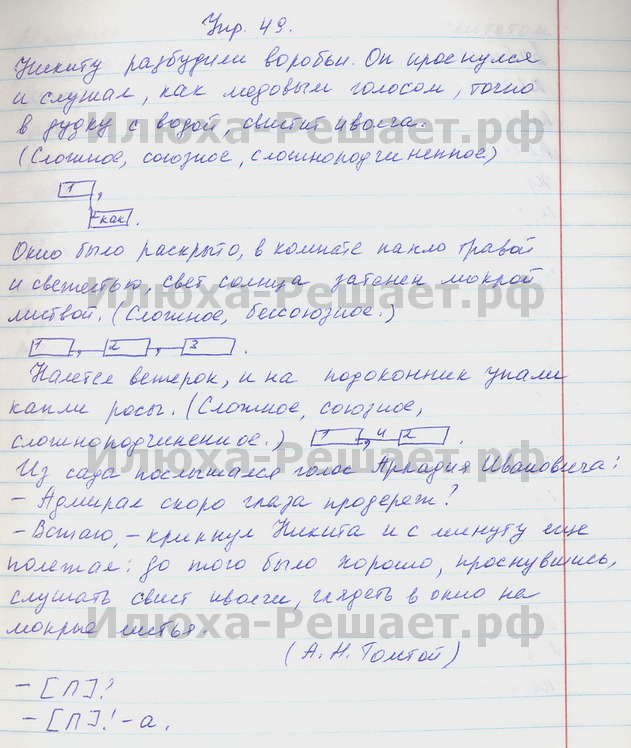 Упр. 49.
Никиту разбудили воробьи. Он проснулся
и слушал, как медовым голосом, точно
в дудку с водой, свистит иволга.
Илюха-Решает.рф
(Сложное, союзное, сложноподчиненное)
1 ,
как .
Окно было раскрыто, в комнате пахло травой
и свежестью, свет солнца затенен мокрой
Илюха-Решает.рф
листвой. (Сложное, бессоюзное.)
1 , 2 , 3 .
Налетел ветерок, и на подоконник упали
капли росы. (Сложное, союзное,
сложноподчиненное.) 1 , и 2 .
Илюха-Решает.рф
Из сада послышался голос Аркадия Ивановича:
– Адмирал скоро глаза продерет?
– Встаю, – крикнул Никита и с минуту еще
полежал: до того было хорошо, проснувшись,
слушать свист иволги, глядеть в окно на
Илюха-Решает.рф
мокрые листья.
(А. Н. Толстой)
– [П]?
– [П]! – а.